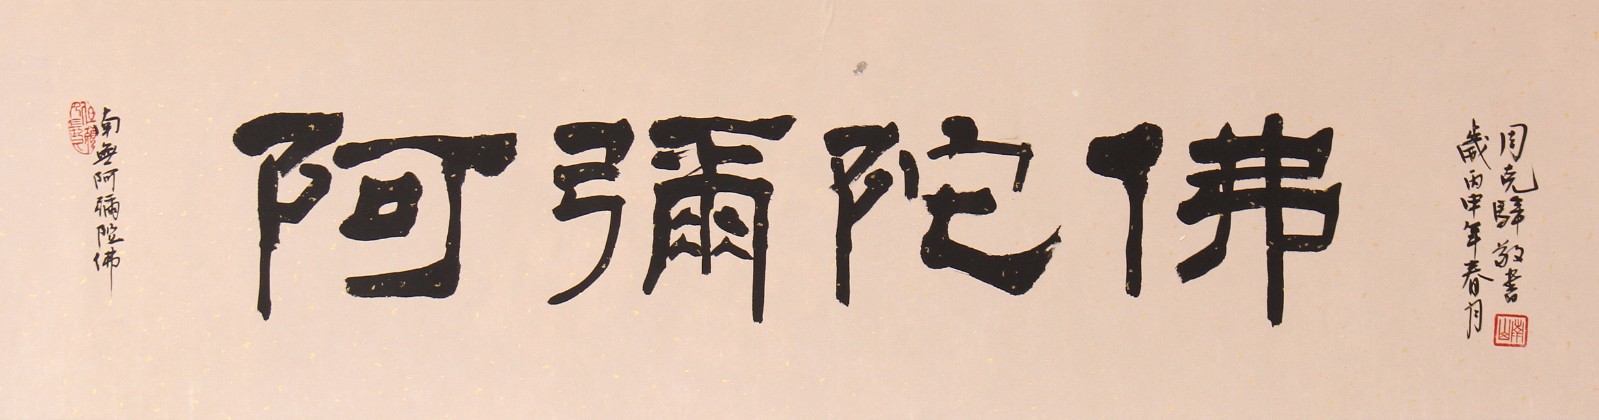 南無阿彌陀佛
阿彌陀佛
歲丙申年春月
周克歸敬書
南山